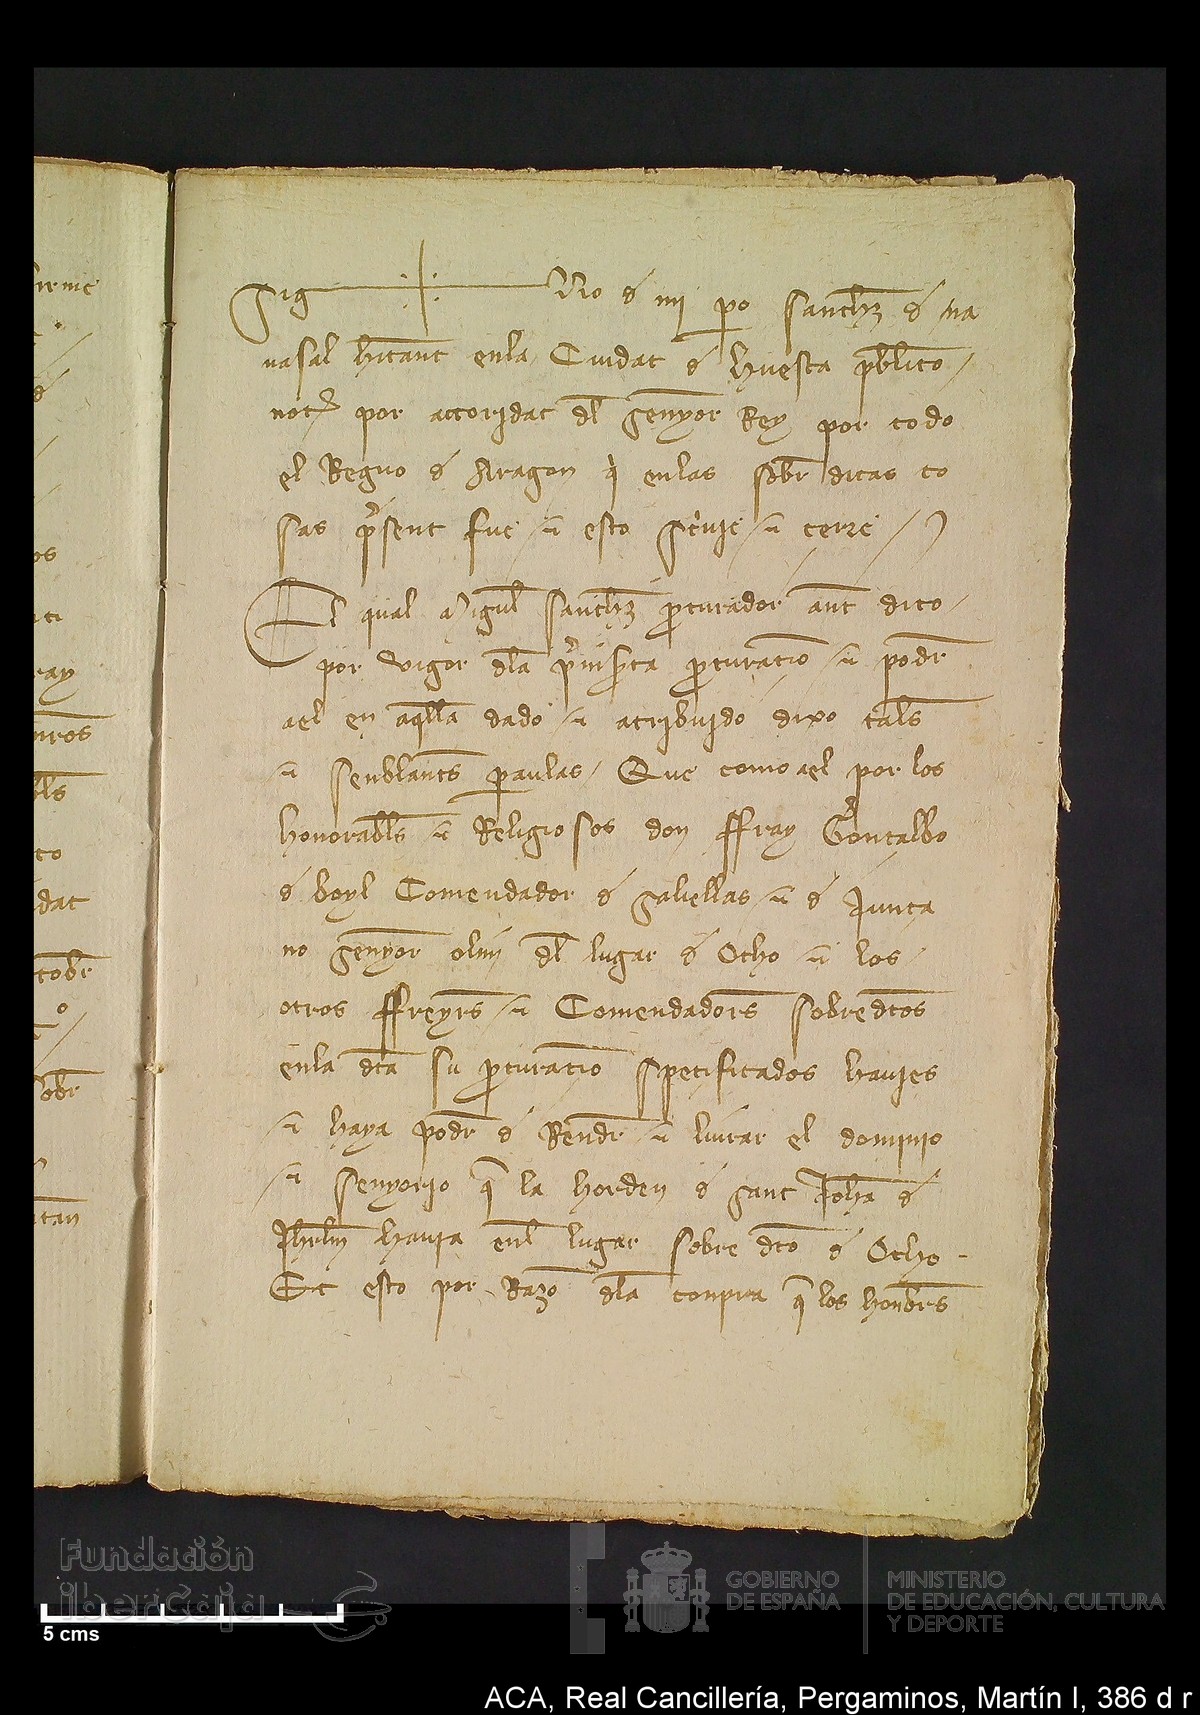 Sig no d mi po sanchz d na
uasal hitant enla Ciudat d huesca publico
not por actoridat dl senyor Rey por todo
el Regno d Aragon q enlas sobrditas co
sas psent fue et esto scriuie et cerre
El qual Migul sanchz procurador ant dito
por vigor dla pinserta procuratio et podr
ael en aqlla dado et atribuido dixo tals
et senblants paraulas Que como ael por los
honorabls et Religiosos don ffray Goncalbo
d boyl Comendador d et d
senyor olim dl lugar d Ocho et los
otros ffreyrs et Comendadors sobredtos
enla dta su procuratio specificados hauies
et haya podr d Rendr et liurar el dominio
et senyorio q la horden d sant Joha d
Jhrlm hauia enl lugar sobre dto d Ocho
Et esto por Razo dla conpra q los honbrs
Fundación
iberCaja
5 cms
GOBIERNO
DE ESPAÑA
MINISTERIO
DE EDUCACIÓN, CULTURA
Y DEPORTE
ACA, Real Cancillería, Pergaminos, Martín I, 386 d r